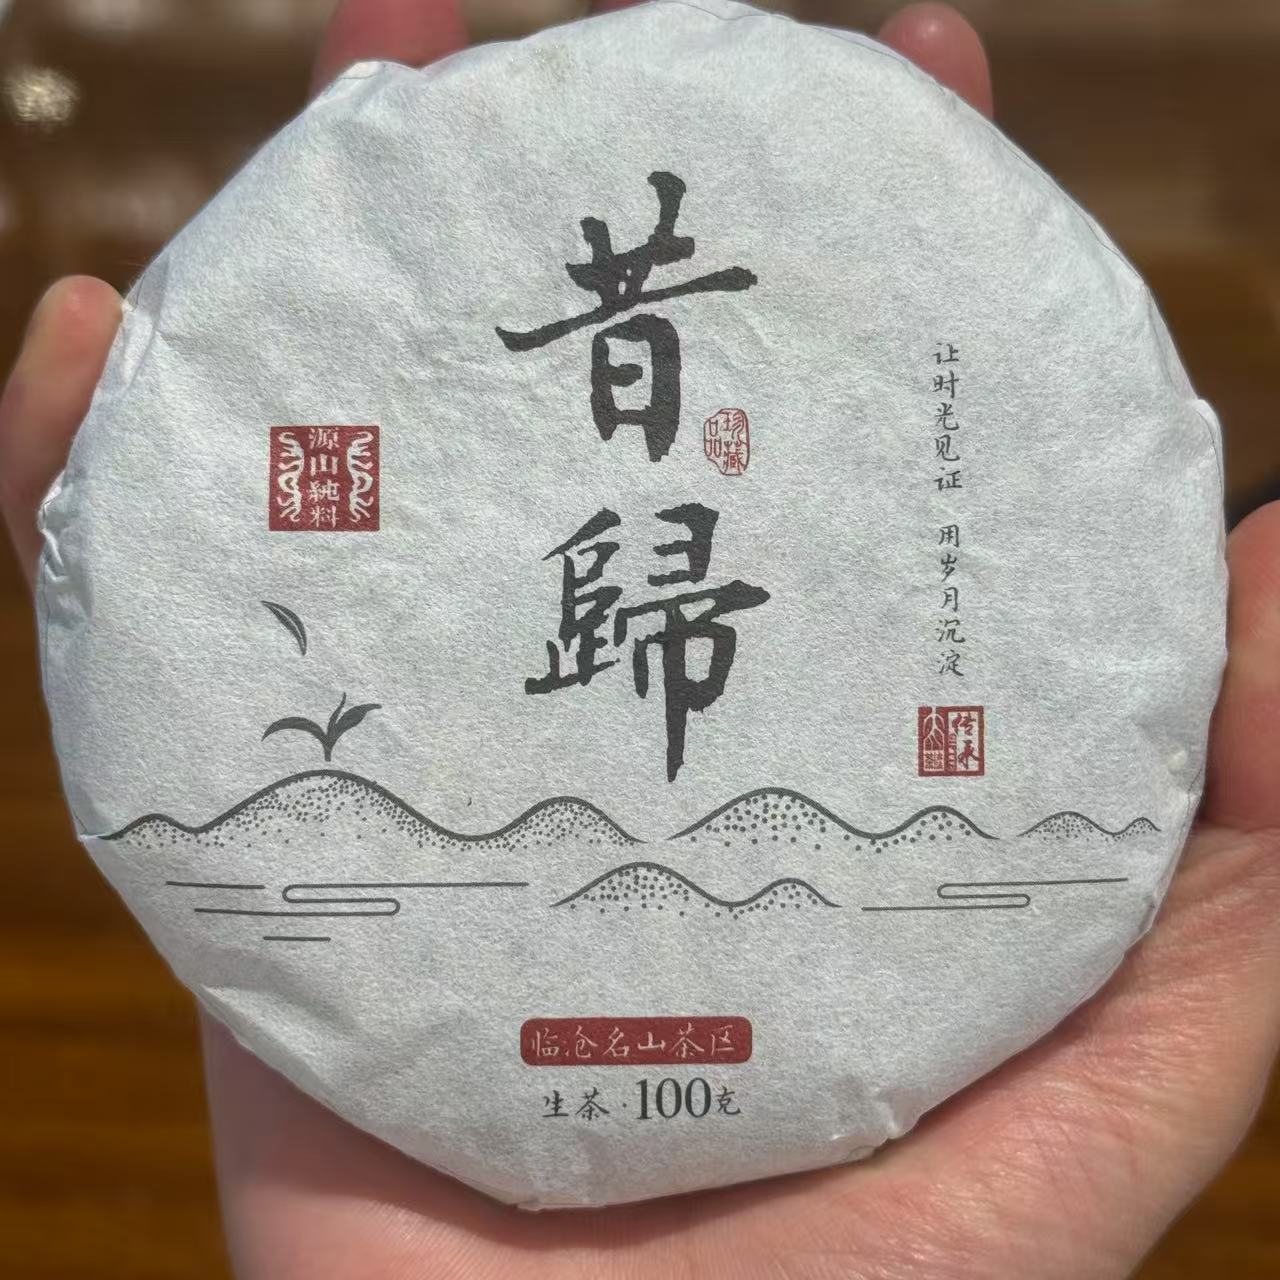 昔歸
珍藏品
让时光见证 用岁月沉淀
传承
源山純料
临沧名山茶区
生茶·100克